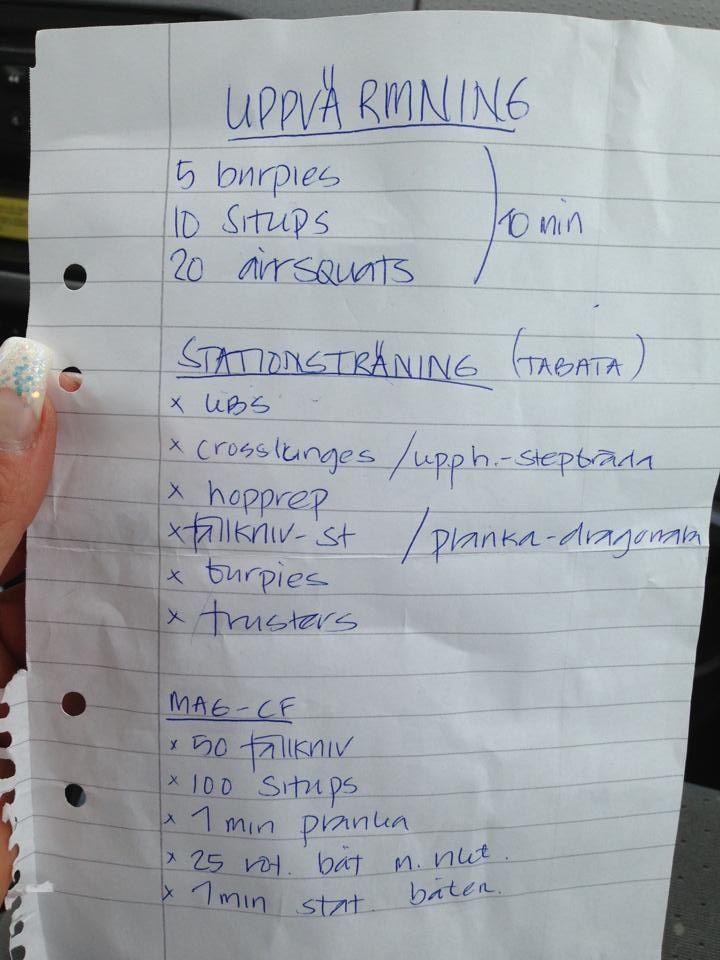 UPPVÄRMNING
5 burpies
10 Situps
20 airsquats
10 min
STATIONSTRÄNING (TABATA)
x UBS
x crosslunges / upph.-stepbräda
x hopprep
x fällkniv-st / planka-dragonara
x burpies
x trusters
MAG-CF
x 50 fällkniv
x 100 Situps
x 1 min planka
x 25 rot. båt m. vikt.
x 1 min stat. båten.